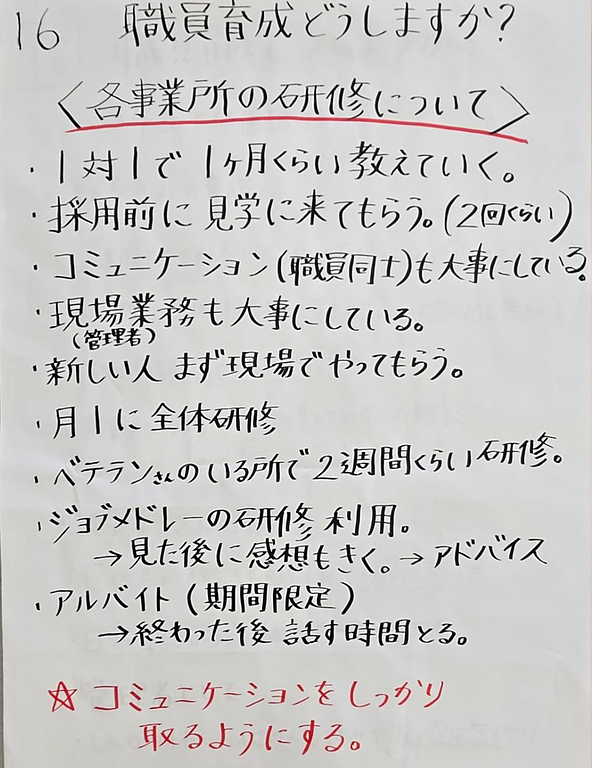 16 職員育成どうしますか?
〈各事業所の研修について〉
・1対1で1ヶ月くらい教えていく。
・採用前に見学に来てもらう。(2回くらい)
・コミュニケーション(職員同士)も大事にしている。
・現場業務も大事にしている。
(管理者)
・新しい人 まず現場でやってもらう。
・月1に全体研修
・ベテランさんのいる所で2週間くらい研修。
・ジョブメドレーの研修利用。
→見た後に感想もきく。→アドバイス
・アルバイト(期間限定)
→終わった後 話す時間とる。
☆コミュニケーションをしっかり
取るようにする。